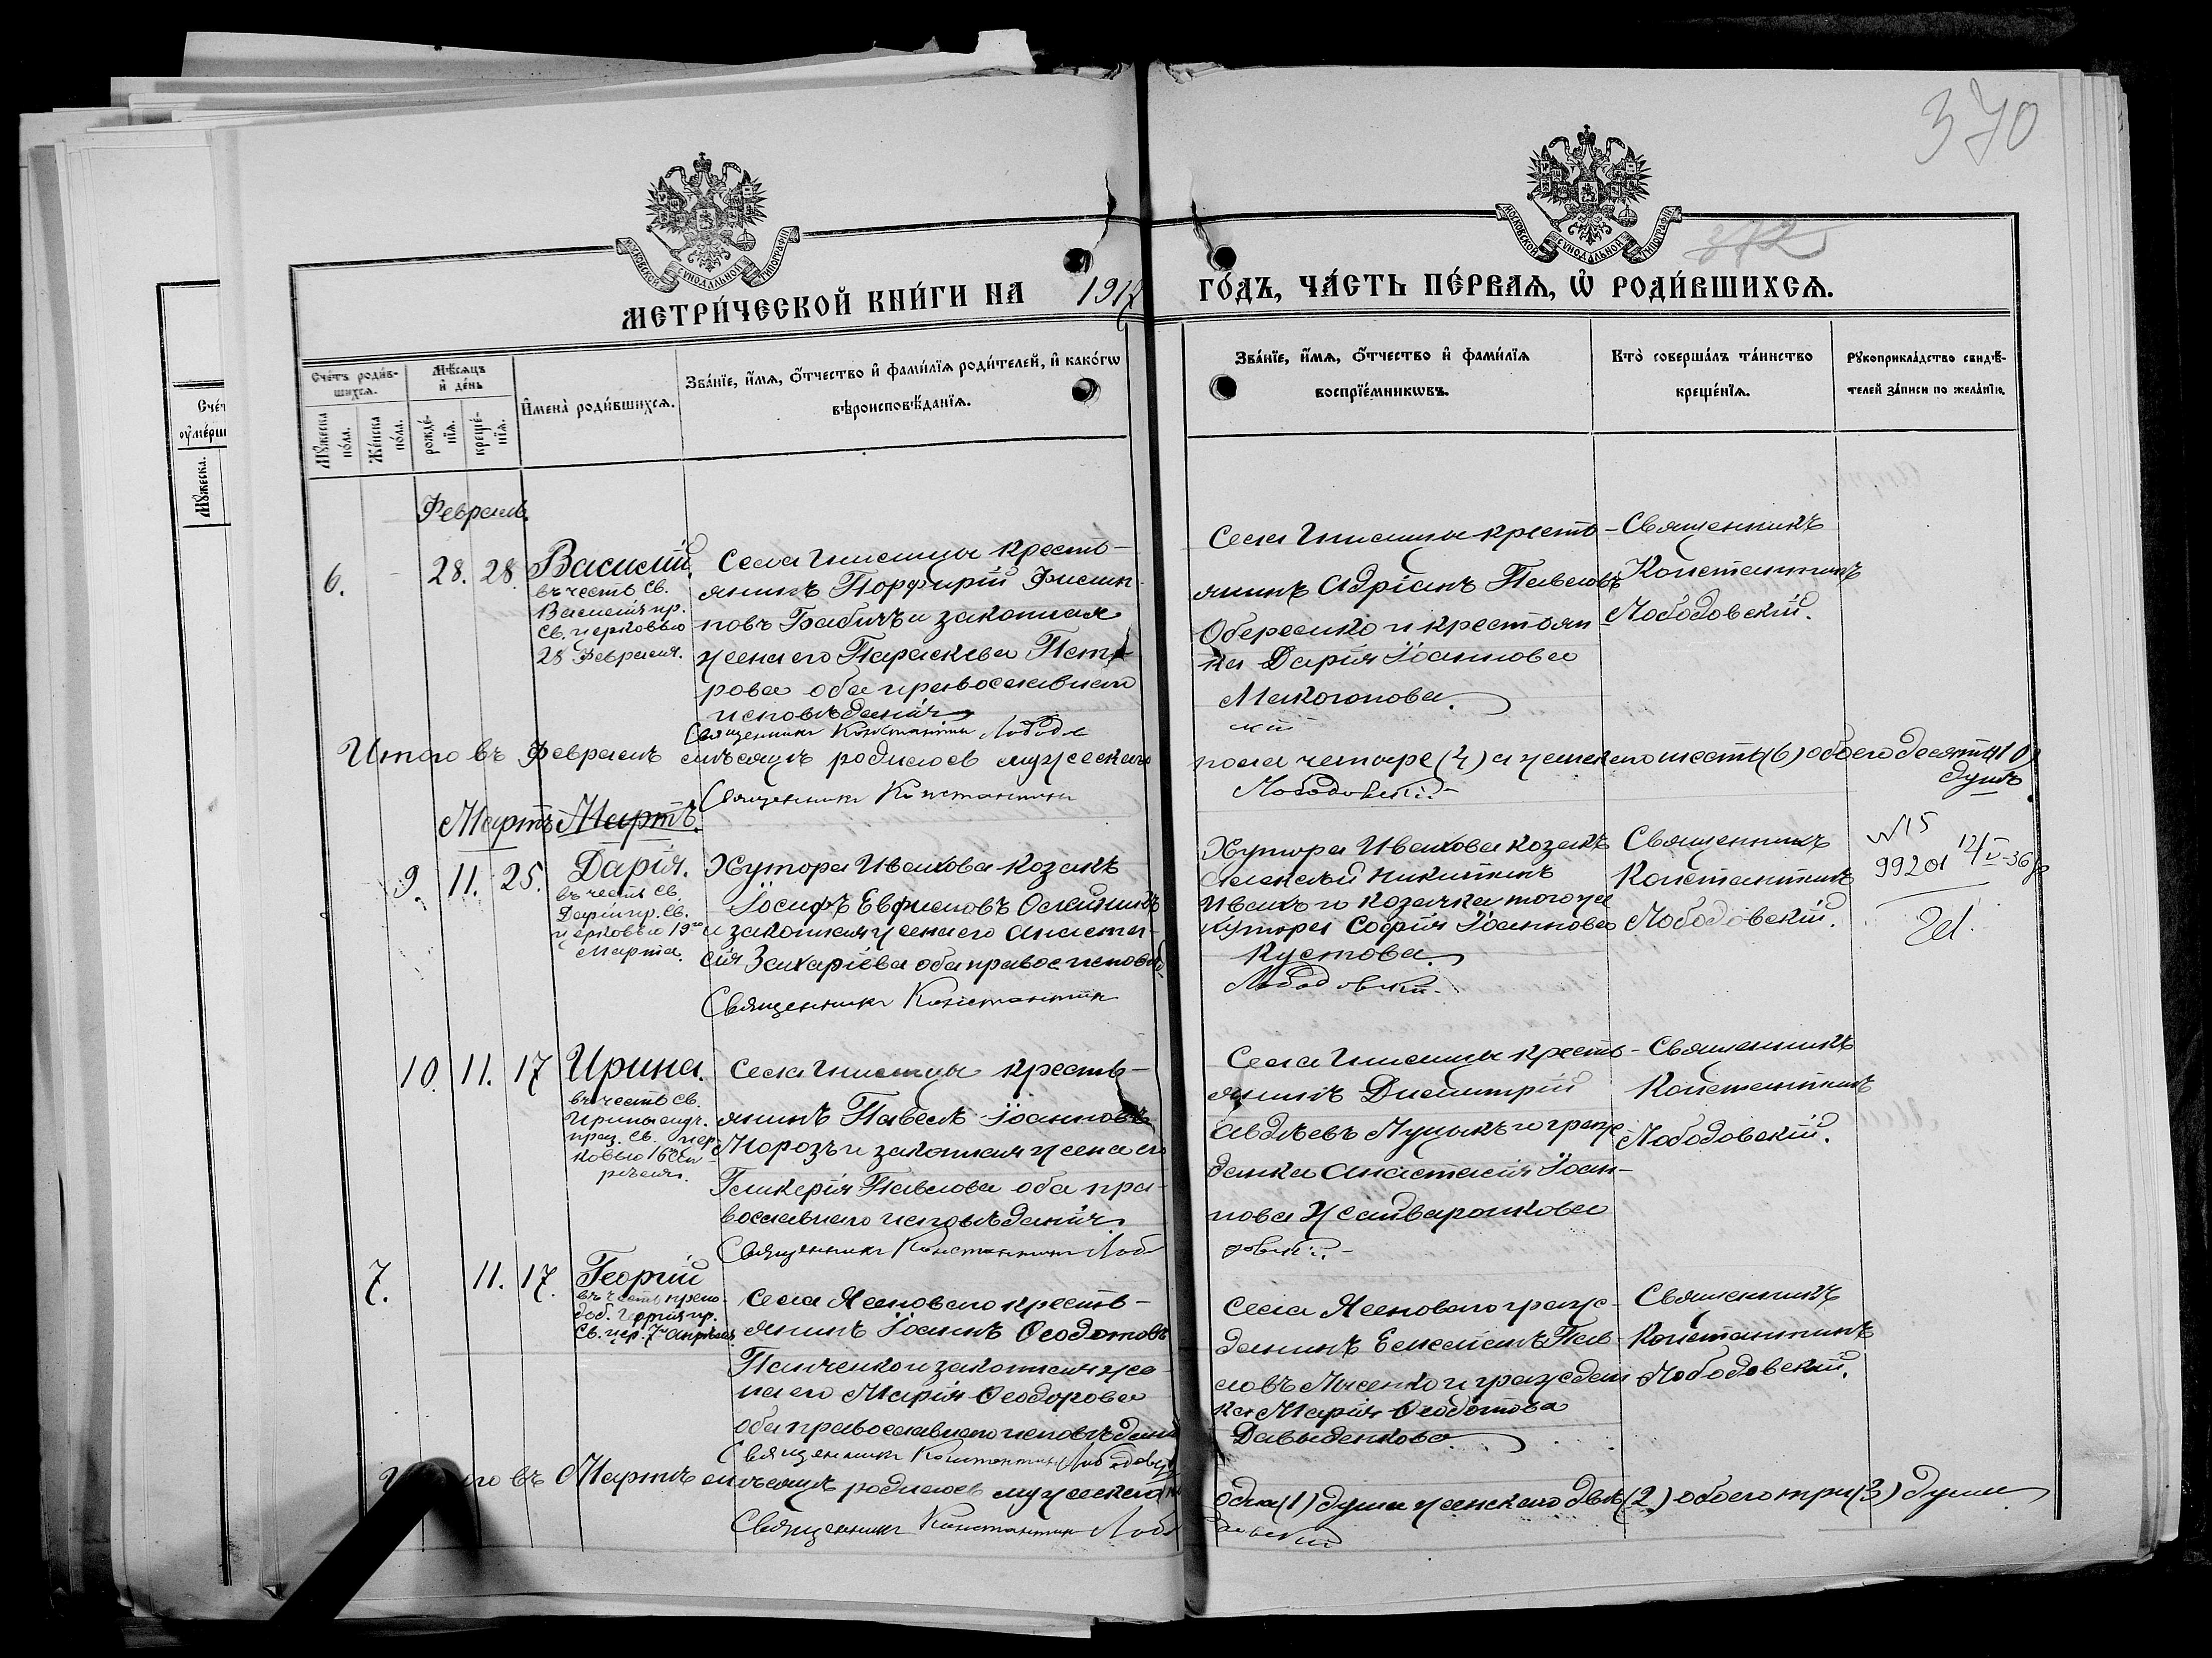 370
372
МОСКОВСКОЙ СѴНОДАЛЬНОЙ ТИПОГРАФІИ
МОСКОВСКОЙ СѴНОДАЛЬНОЙ ТИПОГРАФІИ
МЕТРИ́ЧЕСКОЙ КНИ́ГИ НА 1917 ГО́ДЪ, ЧА́СТЬ ПЕ́РВАЯ, Ѡ РОДИ́ВШИХСЯ.
Сче́тъ роди́в-
шихся.
Мꙋжеска по́ла.
Же́нска по́ла.
Мѣ́сяцъ и де́нь
рожде́-
нїя.
креще́-
нїя.
Имена̀ роди́вшихся.
Зва́нїе, и́мя, о́тчество и фами́лїя роди́телей, и како́гѡ
вѣроисповѣ́данїя.
Зва́нїе, и́мя, о́тчество и фами́лїя
воспрїе́мникѡвъ.
Кто̀ соверша́лъ та́инство
креще́нїя.
Рꙋкоприкла́дство свидѣ́-
телей за́писи по жела́нїю.
Февраль.
6. - 28. 28 Василій.
въ честь Св.
Василія пр.
Св. церковью
28 Февраля.
Села Гнилицы кресть-
янинъ Порфирій Филип-
повъ Бабичъ и законная
жена его Параскева Пет-
рова оба православнаго
исповѣданія
Священникъ Константинъ Лободо
Села Гнилицы кресть-
янинъ Адріанъ Павловъ
Оберемко и крестьян-
ка Дарія Іоаннова
Макогонова.
кій
Священникъ
Константинъ
Лободовскій.
Итого въ Февралѣ мѣсяцѣ родилось мужескаго пола четыре (4) а женскаго шесть (6) обоего десять (10)
душъ
Священникъ Константинъ Лободовскій
Мартъ Мартъ.
9. 11. 25. Дарія.
въ честь Св.
Даріи пр. Св.
церковью 19го
Марта.
Хутора Ивахова козакъ
Іосифъ Евфимовъ Олейникъ
и законная жена его Анаста-
сія Захаріева оба правос исповѣд
Священникъ Константинъ
Хутора Ивахова козакъ
Алексѣй Никитинъ
Ивахъ и козачка того же
хутора Софія Іоаннова
Кустова.
Лободовскій.
Священникъ
Константинъ
Лободовскій.
№15
99201 14/V-36г
10. 11. 17 Ирина.
въ честь Св.
Ирины муч.
праз. Св. цер-
ковью 16 Ап-
рѣля.
Села Гнилицы кресть-
янинъ Павелъ Іоанновъ
Морозъ и законная жена его
Гликерія Павлова оба пра-
вославнаго исповѣданія.
Священникъ Константинъ Лобо
Села Гнилицы кресть-
янинъ Димитрій
Авдѣевъ Луцыкъ и граж-
данка Анастасія Іоан-
нова Жайваронкова
довскій.
Священникъ
Константинъ
Лободовскій.
7. 11. 17. Георгій
въ честь препо-
доб. Георгія пр.
Св. цер. 7го Апрѣля.
Села Ясеноваго кресть-
янинъ Іоаннъ Ѳеодотовъ
Панченко и законная же-
на его Марія Ѳеодорова
оба православнаго исповѣданія
Священникъ Константинъ Лободовскій
Села Ясеноваго граж-
данинъ Емеліанъ Пав-
ловъ Лысенко и граждан-
ка Марія Ѳеодотова
Давыденкова
Священникъ
Константинъ
Лободовскій.
Итого въ Мартѣ мѣсяцѣ родилось мужескаго одна (1) душа женскаго двѣ (2) обоего три (3) души
Священникъ Константинъ Лободовскій